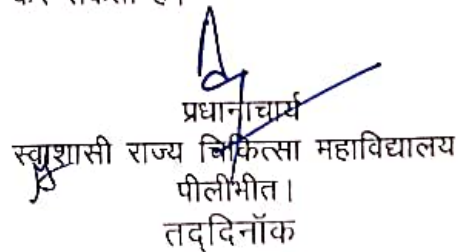 प्रधानाचार्य
स्वाशासी राज्य चिकित्सा महाविद्यालय
पीलीभीत।
तद्दिनॉक